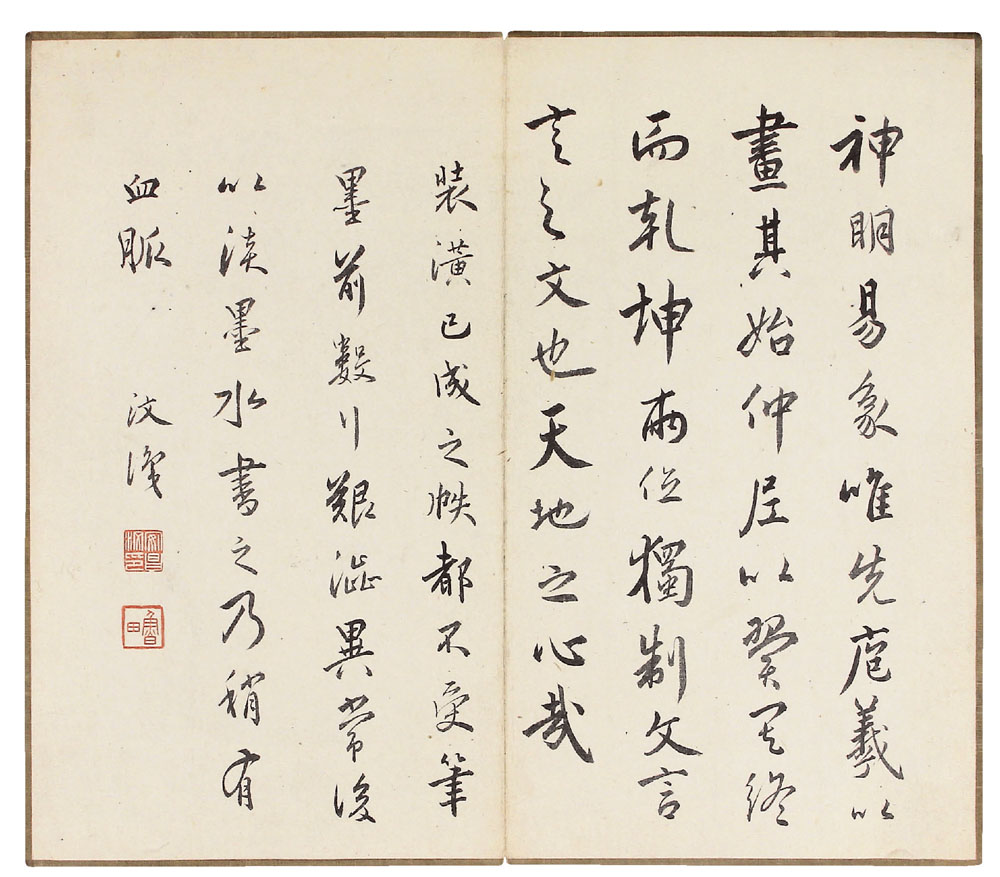 神明易象唯先庖羲以
畫其始仲尼以翼其終
而乾坤兩位獨制文言
言之文也天地之心哉
裝潢已成之帙都不受筆
墨前數行艱澀異常後
以淡墨水書之乃稍有
血脈
汶識
魯田